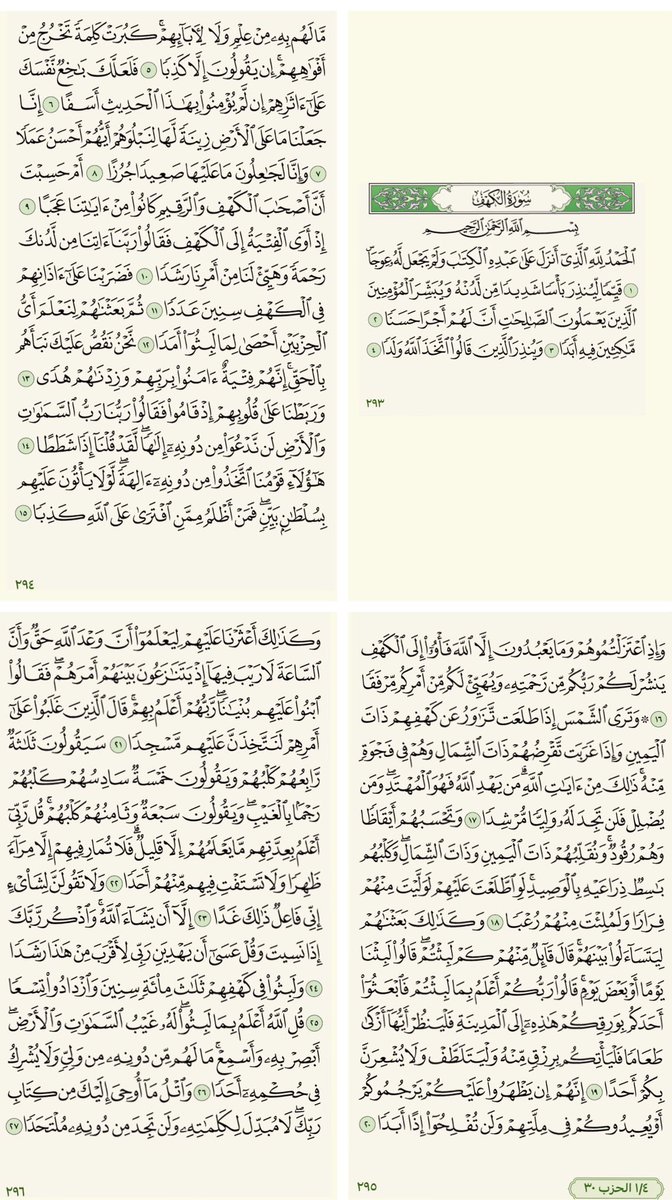 سُورَةُ الكَهْفِ
بِسْمِ ٱللَّهِ ٱلرَّحْمَٰنِ ٱلرَّحِيمِ
ٱلْحَمْدُ لِلَّهِ ٱلَّذِىٓ أَنزَلَ عَلَىٰ عَبْدِهِ ٱلْكِتَٰبَ وَلَمْ يَجْعَل لَّهُۥ عِوَجَاۜ
١ قَيِّمًا لِّيُنذِرَ بَأْسًا شَدِيدًا مِّن لَّدُنْهُ وَيُبَشِّرَ ٱلْمُؤْمِنِينَ
ٱلَّذِينَ يَعْمَلُونَ ٱلصَّٰلِحَٰتِ أَنَّ لَهُمْ أَجْرًا حَسَنًا ٢
مَّٰكِثِينَ فِيهِ أَبَدًا ٣ وَيُنذِرَ ٱلَّذِينَ قَالُوا۟ ٱتَّخَذَ ٱللَّهُ وَلَدًا ٤
٢٩٣
مَّا لَهُم بِهِۦ مِنْ عِلْمٍ وَلَا لِءَابَآئِهِمْ ۚ كَبُرَتْ كَلِمَةً تَخْرُجُ مِنْ
أَفْوَٰهِهِمْ ۚ إِن يَقُولُونَ إِلَّا كَذِبًا ٥ فَلَعَلَّكَ بَٰخِعٌ نَّفْسَكَ
عَلَىٰٓ ءَاثَٰرِهِمْ إِن لَّمْ يُؤْمِنُوا۟ بِهَٰذَا ٱلْحَدِيثِ أَسَفًا ٦ إِنَّا
جَعَلْنَا مَا عَلَى ٱلْأَرْضِ زِينَةً لَّهَا لِنَبْلُوَهُمْ أَيُّهُمْ أَحْسَنُ عَمَلًا
٧ وَإِنَّا لَجَٰعِلُونَ مَا عَلَيْهَا صَعِيدًا جُرُزًا ٨ أَمْ حَسِبْتَ
أَنَّ أَصْحَٰبَ ٱلْكَهْفِ وَٱلرَّقِيمِ كَانُوا۟ مِنْ ءَايَٰتِنَا عَجَبًا ٩
إِذْ أَوَى ٱلْفِتْيَةُ إِلَى ٱلْكَهْفِ فَقَالُوا۟ رَبَّنَآ ءَاتِنَا مِن لَّدُنكَ
رَحْمَةً وَهَيِّئْ لَنَا مِنْ أَمْرِنَا رَشَدًا ١٠ فَضَرَبْنَا عَلَىٰٓ ءَاذَانِهِمْ
فِى ٱلْكَهْفِ سِنِينَ عَدَدًا ١١ ثُمَّ بَعَثْنَٰهُمْ لِنَعْلَمَ أَىُّ
ٱلْحِزْبَيْنِ أَحْصَىٰ لِمَا لَبِثُوٓا۟ أَمَدًا ١٢ نَّحْنُ نَقُصُّ عَلَيْكَ نَبَأَهُم
بِٱلْحَقِّ ۚ إِنَّهُمْ فِتْيَةٌ ءَامَنُوا۟ بِرَبِّهِمْ وَزِدْنَٰهُمْ هُدًى ١٣
وَرَبَطْنَا عَلَىٰ قُلُوبِهِمْ إِذْ قَامُوا۟ فَقَالُوا۟ رَبُّنَا رَبُّ ٱلسَّمَٰوَٰتِ
وَٱلْأَرْضِ لَن نَّدْعُوَا۟ مِن دُونِهِۦٓ إِلَٰهًا ۖ لَّقَدْ قُلْنَآ إِذًا شَطَطًا ١٤
هَٰٓؤُلَآءِ قَوْمُنَا ٱتَّخَذُوا۟ مِن دُونِهِۦٓ ءَالِهَةً ۖ لَّوْلَا يَأْتُونَ عَلَيْهِم
بِسُلْطَٰنٍۭ بَيِّنٍ ۖ فَمَنْ أَظْلَمُ مِمَّنِ ٱفْتَرَىٰ عَلَى ٱللَّهِ كَذِبًا ١٥
٢٩٤
وَإِذِ ٱعْتَزَلْتُمُوهُمْ وَمَا يَعْبُدُونَ إِلَّا ٱللَّهَ فَأْوُۥٓا۟ إِلَى ٱلْكَهْفِ
يَنشُرْ لَكُمْ رَبُّكُم مِّن رَّحْمَتِهِۦ وَيُهَيِّئْ لَكُم مِّنْ أَمْرِكُم مِّرْفَقًا
١٦ ۞ وَتَرَى ٱلشَّمْسَ إِذَا طَلَعَت تَّزَٰوَرُ عَن كَهْفِهِمْ ذَاتَ
ٱلْيَمِينِ وَإِذَا غَرَبَت تَّقْرِضُهُمْ ذَاتَ ٱلشِّمَالِ وَهُمْ فِى فَجْوَةٍ
مِّنْهُ ۚ ذَٰلِكَ مِنْ ءَايَٰتِ ٱللَّهِ ۗ مَن يَهْدِ ٱللَّهُ فَهُوَ ٱلْمُهْتَدِ ۖ وَمَن
يُضْلِلْ فَلَن تَجِدَ لَهُۥ وَلِيًّا مُّرْشِدًا ١٧ وَتَحْسَبُهُمْ أَيْقَاظًا
وَهُمْ رُقُودٌ ۚ وَنُقَلِّبُهُمْ ذَاتَ ٱلْيَمِينِ وَذَاتَ ٱلشِّمَالِ ۖ وَكَلْبُهُم
بَٰسِطٌ ذِرَاعَيْهِ بِٱلْوَصِيدِ ۚ لَوِ ٱطَّلَعْتَ عَلَيْهِمْ لَوَلَّيْتَ مِنْهُمْ
فِرَارًا وَلَمُلِئْتَ مِنْهُمْ رُعْبًا ١٨ وَكَذَٰلِكَ بَعَثْنَٰهُمْ
لِيَتَسَآءَلُوا۟ بَيْنَهُمْ ۚ قَالَ قَآئِلٌ مِّنْهُمْ كَمْ لَبِثْتُمْ ۖ قَالُوا۟ لَبِثْنَا
يَوْمًا أَوْ بَعْضَ يَوْمٍ ۚ قَالُوا۟ رَبُّكُمْ أَعْلَمُ بِمَا لَبِثْتُمْ فَٱبْعَثُوٓا۟
أَحَدَكُم بِوَرِقِكُمْ هَٰذِهِۦٓ إِلَى ٱلْمَدِينَةِ فَلْيَنظُرْ أَيُّهَآ أَزْكَىٰ
طَعَامًا فَلْيَأْتِكُم بِرِزْقٍ مِّنْهُ وَلْيَتَلَطَّفْ وَلَا يُشْعِرَنَّ
بِكُمْ أَحَدًا ١٩ إِنَّهُمْ إِن يَظْهَرُوا۟ عَلَيْكُمْ يَرْجُمُوكُمْ
أَوْ يُعِيدُوكُمْ فِى مِلَّتِهِمْ وَلَن تُفْلِحُوٓا۟ إِذًا أَبَدًا ٢٠
٢٩٥
١/٤ الحزب ٣٠
وَكَذَٰلِكَ أَعْثَرْنَا عَلَيْهِمْ لِيَعْلَمُوٓا۟ أَنَّ وَعْدَ ٱللَّهِ حَقٌّ وَأَنَّ
ٱلسَّاعَةَ لَا رَيْبَ فِيهَآ إِذْ يَتَنَٰزَعُونَ بَيْنَهُمْ أَمْرَهُمْ ۖ فَقَالُوا۟
ٱبْنُوا۟ عَلَيْهِم بُنْيَٰنًا ۖ رَّبُّهُمْ أَعْلَمُ بِهِمْ ۚ قَالَ ٱلَّذِينَ غَلَبُوا۟ عَلَىٰٓ
أَمْرِهِمْ لَنَتَّخِذَنَّ عَلَيْهِم مَّسْجِدًا ٢١ سَيَقُولُونَ ثَلَٰثَةٌ
رَّابِعُهُمْ كَلْبُهُمْ وَيَقُولُونَ خَمْسَةٌ سَادِسُهُمْ كَلْبُهُمْ
رَجْمًۢا بِٱلْغَيْبِ ۖ وَيَقُولُونَ سَبْعَةٌ وَثَامِنُهُمْ كَلْبُهُمْ ۚ قُل رَّبِّىٓ
أَعْلَمُ بِعِدَّتِهِم مَّا يَعْلَمُهُمْ إِلَّا قَلِيلٌ ۗ فَلَا تُمَارِ فِيهِمْ إِلَّا مِرَآءً
ظَٰهِرًا وَلَا تَسْتَفْتِ فِيهِم مِّنْهُمْ أَحَدًا ٢٢ وَلَا تَقُولَنَّ لِشَا۟ىْءٍ
إِنِّى فَاعِلٌ ذَٰلِكَ غَدًا ٢٣ إِلَّآ أَن يَشَآءَ ٱللَّهُ ۚ وَٱذْكُر رَّبَّكَ
إِذَا نَسِيتَ وَقُلْ عَسَىٰٓ أَن يَهْدِيَنِ رَبِّى لِأَقْرَبَ مِنْ هَٰذَا رَشَدًا
٢٤ وَلَبِثُوا۟ فِى كَهْفِهِمْ ثَلَٰثَ مِا۟ئَةٍ سِنِينَ وَٱزْدَادُوا۟ تِسْعًا
٢٥ قُلِ ٱللَّهُ أَعْلَمُ بِمَا لَبِثُوا۟ ۖ لَهُۥ غَيْبُ ٱلسَّمَٰوَٰتِ وَٱلْأَرْضِ ۖ
أَبْصِرْ بِهِۦ وَأَسْمِعْ ۚ مَا لَهُم مِّن دُونِهِۦ مِن وَلِىٍّ وَلَا يُشْرِكُ
فِى حُكْمِهِۦٓ أَحَدًا ٢٦ وَٱتْلُ مَآ أُوحِىَ إِلَيْكَ مِن كِتَابِ
رَبِّكَ ۖ لَا مُبَدِّلَ لِكَلِمَٰتِهِۦ وَلَن تَجِدَ مِن دُونِهِۦ مُلْتَحَدًا ٢٧
٢٩٦